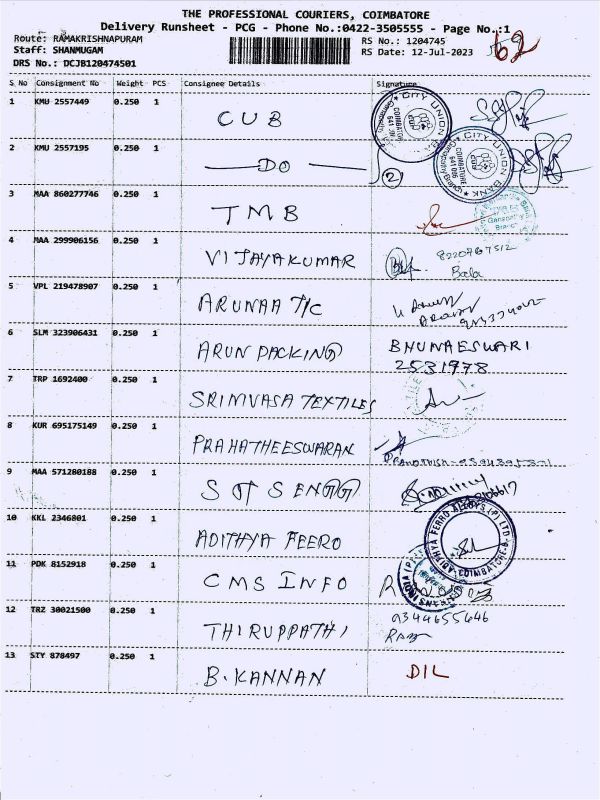 THE PROFESSIONAL COURIERS, COIMBATORE
Delivery Runsheet - PCG - Phone No.:0422-3505555 - Page No.:1
Route: RAMAKRISHNAPURAM RS No.: 1204745 62
Staff: SHANMUGAM RS Date: 12-Jul-2023
DRS No.: DCJB120474501
S No Consignment No Weight PCS Consignee Details Signature
1 KMU 2557449 0.250 1 CUB CITY UNION BANK COIMBATORE
2 KMU 2557195 0.250 1 DO 2 CITY UNION BANK COIMBATORE
3 MAA 860277746 0.250 1 TMB
4 MAA 299906156 0.250 1 VIJAYAKUMAR 8220767512
Bala
5 VPL 219478907 0.250 1 ARUNAA T/C
6 SLM 323906431 0.250 1 ARUN PACKING BHUNAESWARI
2531978
7 TRP 1692400 0.250 1 SRIMVASA TEXTILES
8 KUR 695175149 0.250 1 PRAHATHEESWARAN
9 MAA 571280188 0.250 1
10 KKL 2346801 0.250 1 ADITHYA FEERO ADITHYA FERRO ALLOYS (P) LTD COIMBATORE
11 PDK 8152918 0.250 1 CMS INFO
12 TRZ 30021500 0.250 1 THIRUPPATHI 9344655646
13 STY 878497 0.250 1 B. KANNAN DIL